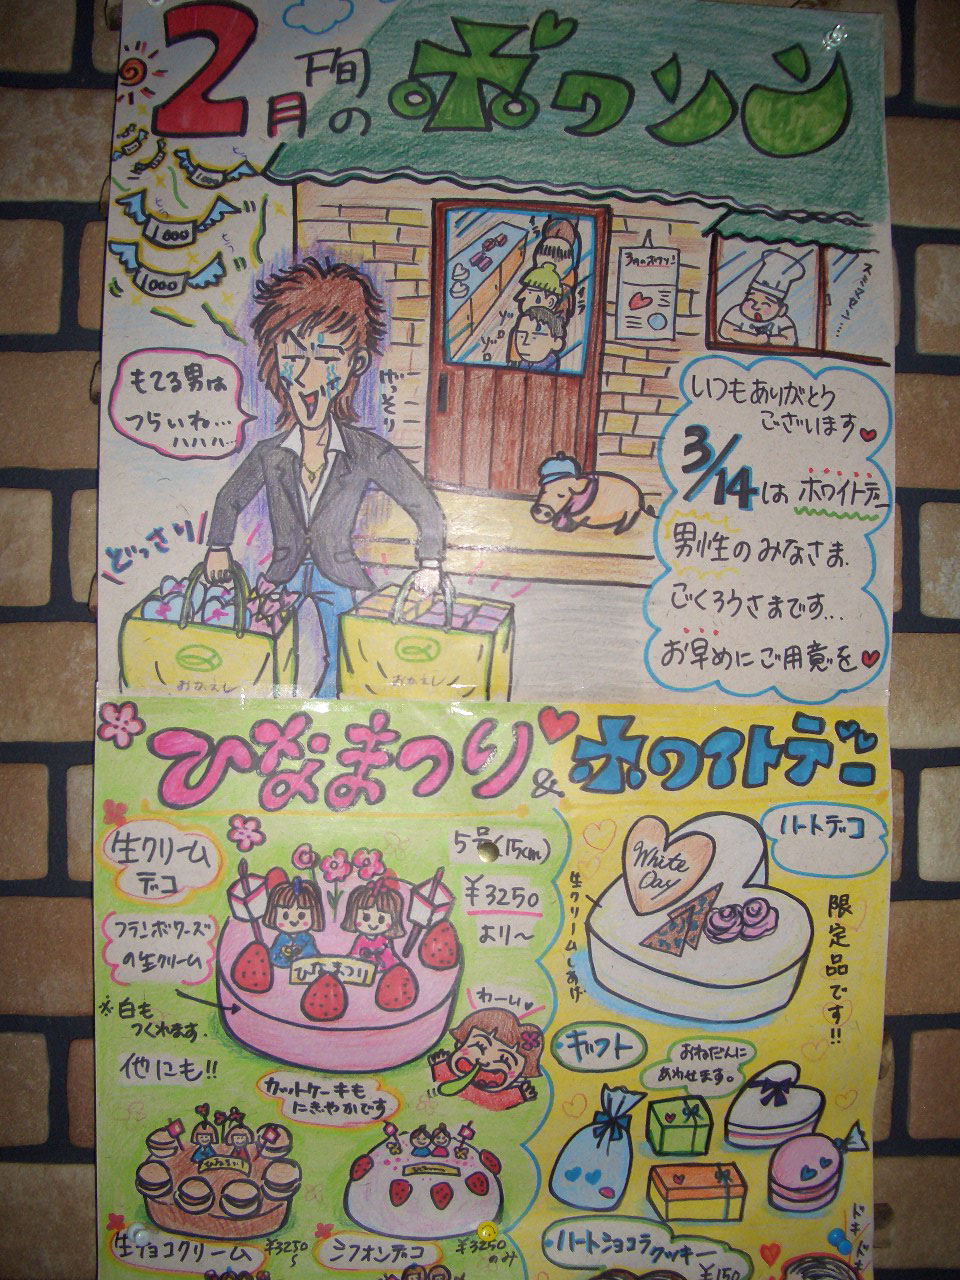 2月下旬の
ボワソン
1000
1000
3月のボワソン!
スミマセン…
もてる男は
つらいね…
ハハハ…
げっそり
ゾロ
ゾロ
いつもありがとう
ございます
3/14は ホワイトデー
男性のみなさま
ごくろうさまです…
お早めにご用意を
どっさり
おかえし
おかえし
ひなまつり
&
ホワイトデー
生クリーム
デコ
5号(15cm)
¥3250
より〜
フランボワーズ
の生クリーム
※白も
つくれます.
他にも!!
ひなまつり
わーい
カットケーキも
にぎやかです
生チョコクリーム
¥3250
〜
シフォンデコ
¥3250
のみ
ハートデコ
White
Day
生クリームしあげ
限定品です!!
ギフト
おねだんに
あわせます。
ハートショコラクッキー
¥150
ドキドキ